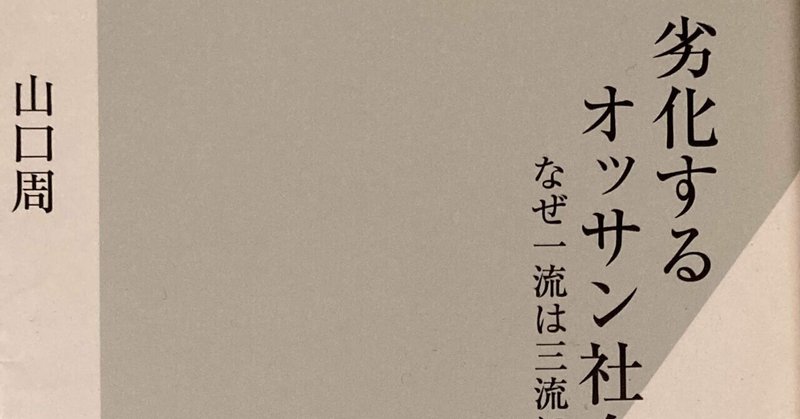 劣化する
オッサン社
なぜ一流は三流
山口周